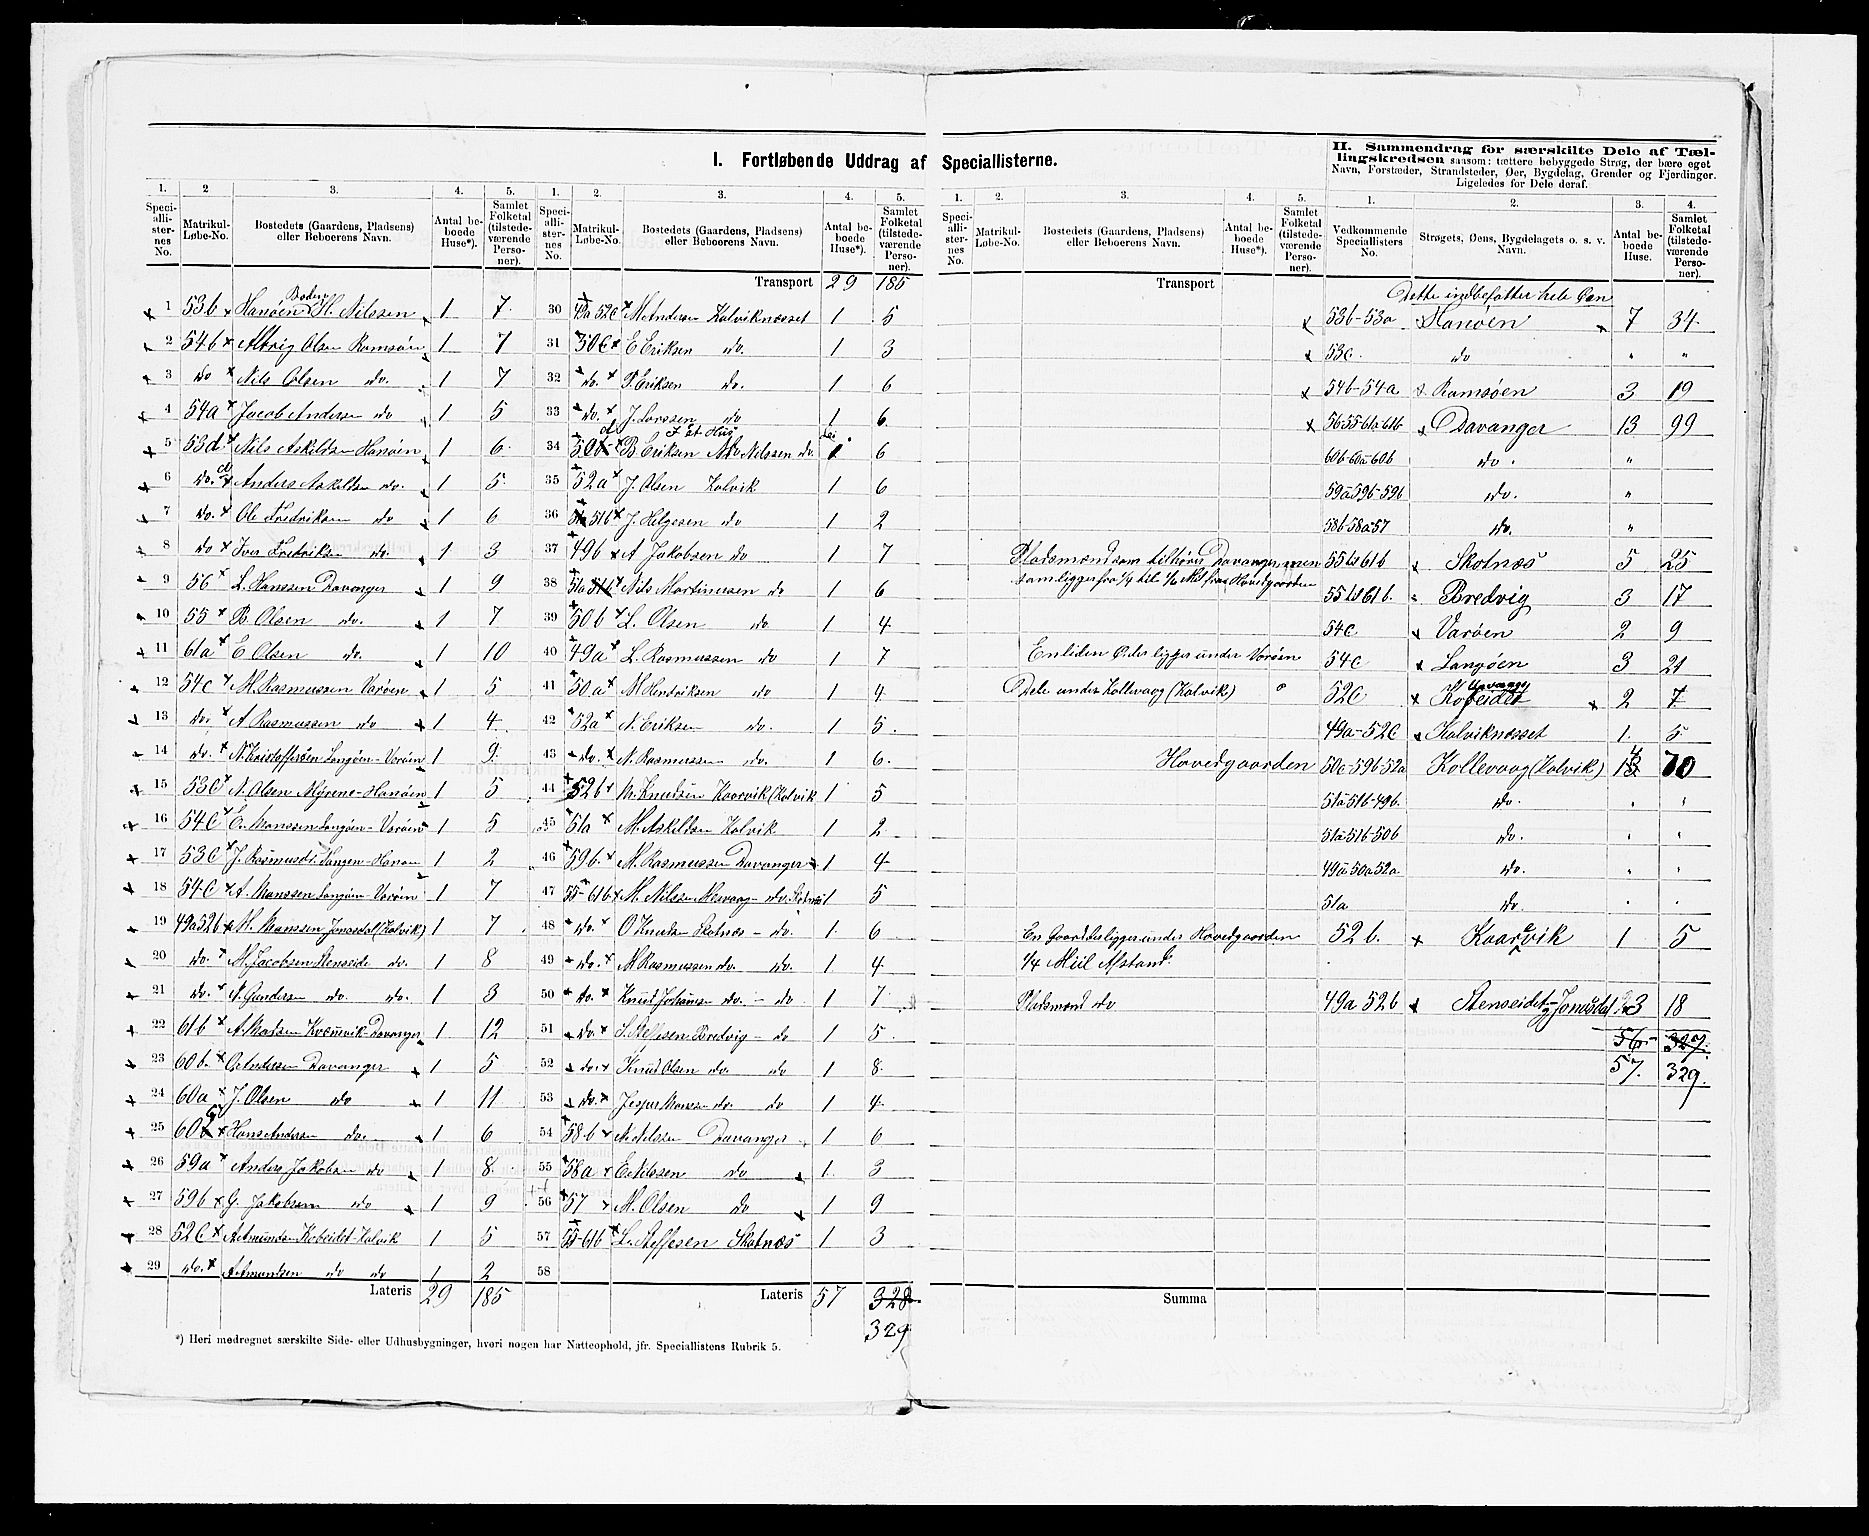 I. Fortløbende Uddrag af Speciallisterne.
1. 2 3. 4. 5.
Speciallisternes No. Matrikul-Løbe-No. Bostedets (Gaardens, Pladsens) eller Beboerens Navn. Antal beboede Huse*). Samlet Folketal (tilstedeværende Personer).
1 53b Hanøen Boden H. Nilssen 1 7
2 54b Olsen Ramsøen 1 7
3 do Nils Olsen do. 1 7
4 54a Jacob Andersen do 1 5
5 53d Nils Askildsen Hanøen 1 6
6 do. Anders Askildsen do. 1 5
7 do. Ole Fredriksen do 1 6
8 do Iver Fredriksen do. 1 3
9 56 L. Hanssen Davanger 1 9
10 55 B. Olsen do. 1 7
11 61a E Olsen do. 1 10
12 54c M. Rasmussen Varøen 1 5
13 do. A. Rasmussen do 1 4
14 do. N. Kristoffersen Langøen-Varøen 1 9
15 53c N. Olsen Myrene-Hanøen 1 5
16 54c E. Monssen Langøen-Varøen 1 5
17 53c J. Rasmusdt. 1 2
18 54c A. Monssen Langøen-Varøen 1 7
19 49a 52b M. Monssen Jonasdal (Kolvik) 1 7
20 do. M. Jacobsen Stenseide do. 1 8
21 do. A. Gundersen do. do. 1 3
22 61b A. Madsen Davanger 1 12
23 60b. O Andersen Davanger 1 5
24 60a J. Olsen do 1 11
25 60 Hans Andersen do. 1 6
26 59a Anders Jakobsen do 1 8
27 59b G. Jakobsen do 1 9
28 52c A Amundsen Kobeidet-Kolvik 1 5
29 do. A Amundsen do do 1 2
Lateris 29 185
*) Heri medregnet særskilte Side- eller Udhusbygninger, hvori nogen har Natteophold, jfr. Speciallistens Rubrik 5.
1. 2. 3. 4. 5.
Speciallisternes No. Matrikul-Løbe-No. Bostedets (Gaardens, Pladsens) eller Beboerens Navn. Antal beboede Huse*). Samlet Folketal (tilstedeværende Personer).
Transport 29 185
30 49a 52c M Andersen Kolviknæsset 1 5
31 50c E Eriksen do. 1 3
32 do. P. Eriksen do. 1 6
33 do. J. Larssen do 1 6
I et Hus
34 50 B. Eriksen Nilssen do. 1 6
35 52a J. Olsen Kolvik 1 6
36 51b J. Helgesen do 1 2
37 49b A Jakobsen do 1 7
38 51a 51b Nils Martinussen do 1 6
39 50b L. Olsen do 1 4
40 49a L. Rasmussen do 1 7
41 50a M Hendriksen do 1 4
42 52a N. Eriksen do. 1 5
43 do. N. Rasmussen do. 1 6
44 52b M. Knudsen Kaarvik (Kolvik 1 5
45 51a M. Askildsen Kolvik 1 2
46 59b. M. Rasmussen Davanger 1 4
47 55-61b M. Nilssen do. 1 5
48 do. O Knudsen Skotnæs - do. 1 6
49 do. M Rasmussen do. do. 1 4
50 do. Knud Johannesen do. - do 1 7
51 do. S. Steffesen Bredvig - do 1 5
52 do. Knud Olsen do do 1 8
53 do. Jesper Monssen do. do 1 4
54 58b N. Nilssen Davanger 1 6
55 58a E Nilssen do 1 3
56 57 M. Olsen do 1 9
57 55-61b L. Steffesen Skotnæs 1 3
58
Lateris 57 328
329
1. 2. 3. 4. 5.
Speciallisternes No. Matrikul-Løbe-No. Bostedets (Gaardens, Pladsens) eller Beboerens Navn. Antal beboede Huse*). Samlet Folketal (tilstedeværende Personer).
Transport
Pladsmænd som tilhører Davanger men
som ligger fra 1/4 til 1/2 Mil fra Hovedgaarden
En liden Ø der ligger under Varøen
Dele under Kollevaag (Kolvik)
Hovedgaarden
En Gaard der ligger under Hovedgaarden
1/4 Miil Afstand.
Pladsmænd do
Summa
II. Sammendrag for særskilte Dele af Tællingskredsen saasom: tættere bebyggede Strøg, der bære eget Navn, Forstæder, Strandsteder, Øer, Bygdelag, Grender og Fjerdinger. Ligeledes for Dele deraf.
1. 2. 3. 4.
Vedkommende Speciallisters No. Strøgets, Øens, Bygdelagets o. s. v. Navn. Antal beboede Huse. Samlet Folketal (tilstedeværende Personer).
Dette indbefatter hele Øen
53b-53a Hanøen 7 34
53c. do " "
54b-54a Ramsøen 3 19
56 55-61a-61b Davanger 13 99
60b-60a-60b do. "
59a-59b-59b do. "
58b-58a-57 do. "
55 61b Skotnæs 5 25
55 61b. Bredvig 3 17
54c. Varøen 2 9
54c Langøen 3 21
52c Kobeidet 2 7
49a-52c Kolviknæsset 1. 5
50c-59b-52a Kollevaag (Kolvik) 13 70
51a-51b-49b. do. " "
51a-51b-50b do. " "
49a-50a-52a. do. " "
51a do.
52b. Kaarvik 1 5
49a 52b Stenseidet-Jonasdal 3 18
56 327.
57. 329.